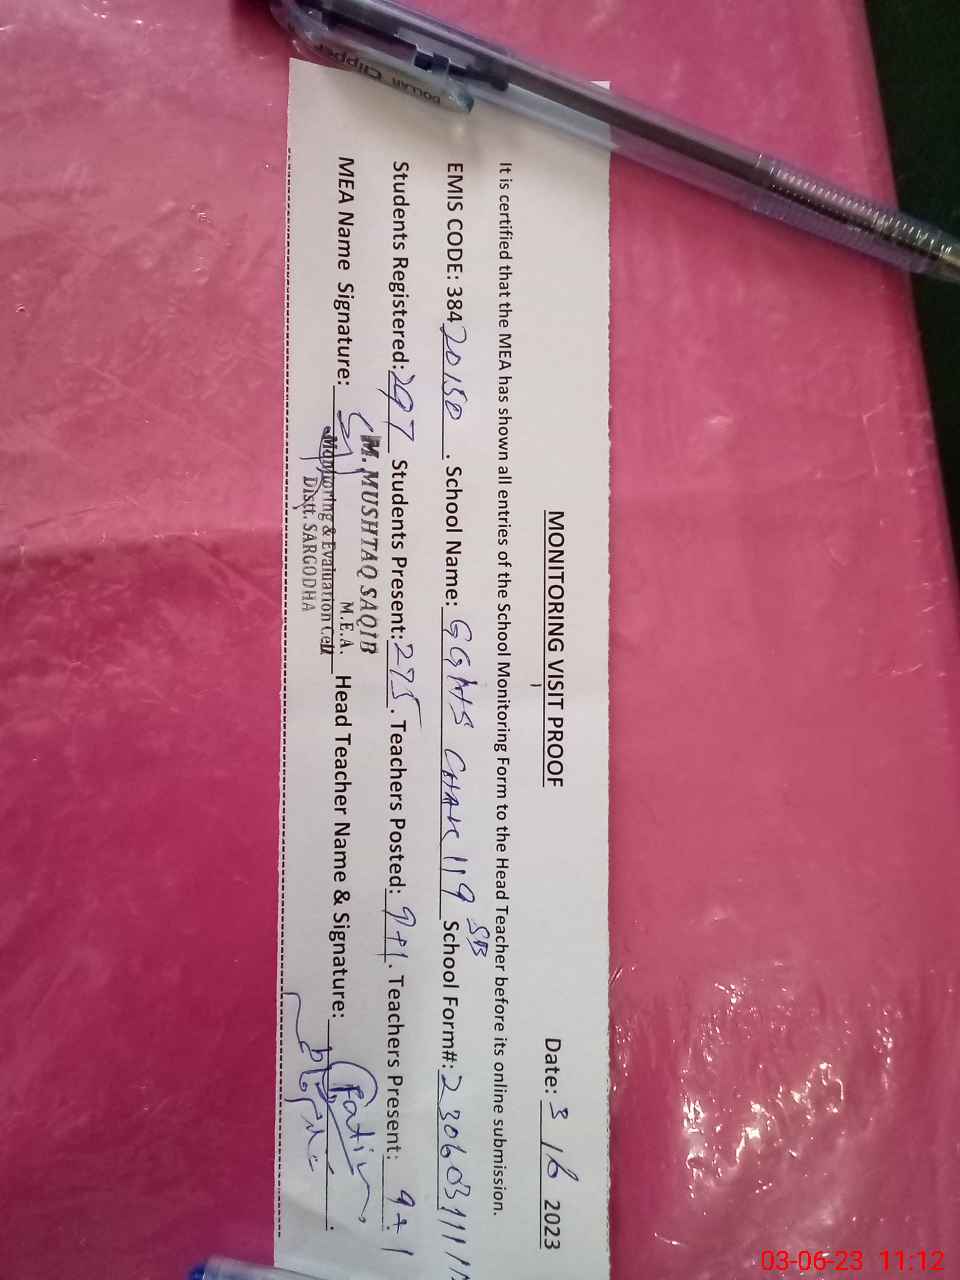 MONITORING VISIT PROOF
Date: 3/6 2023
It is certified that the MEA has shown all entries of the School Monitoring Form to the Head Teacher before its online submission.
EMIS CODE: 38420150. School Name: GGHS CHAK 119 SB School Form#: 230603111
Students Registered: 297 Students Present: 275. Teachers Posted: 9+1. Teachers Present: 9+1
MEA Name Signature: Head Teacher Name & Signature:
M. MUSHTAQ SAQIB
M.E.A.
Monitoring & Evaluation Cell
Distt. SARGODHA
DOLLAR Clipper
03-06-23 11:12